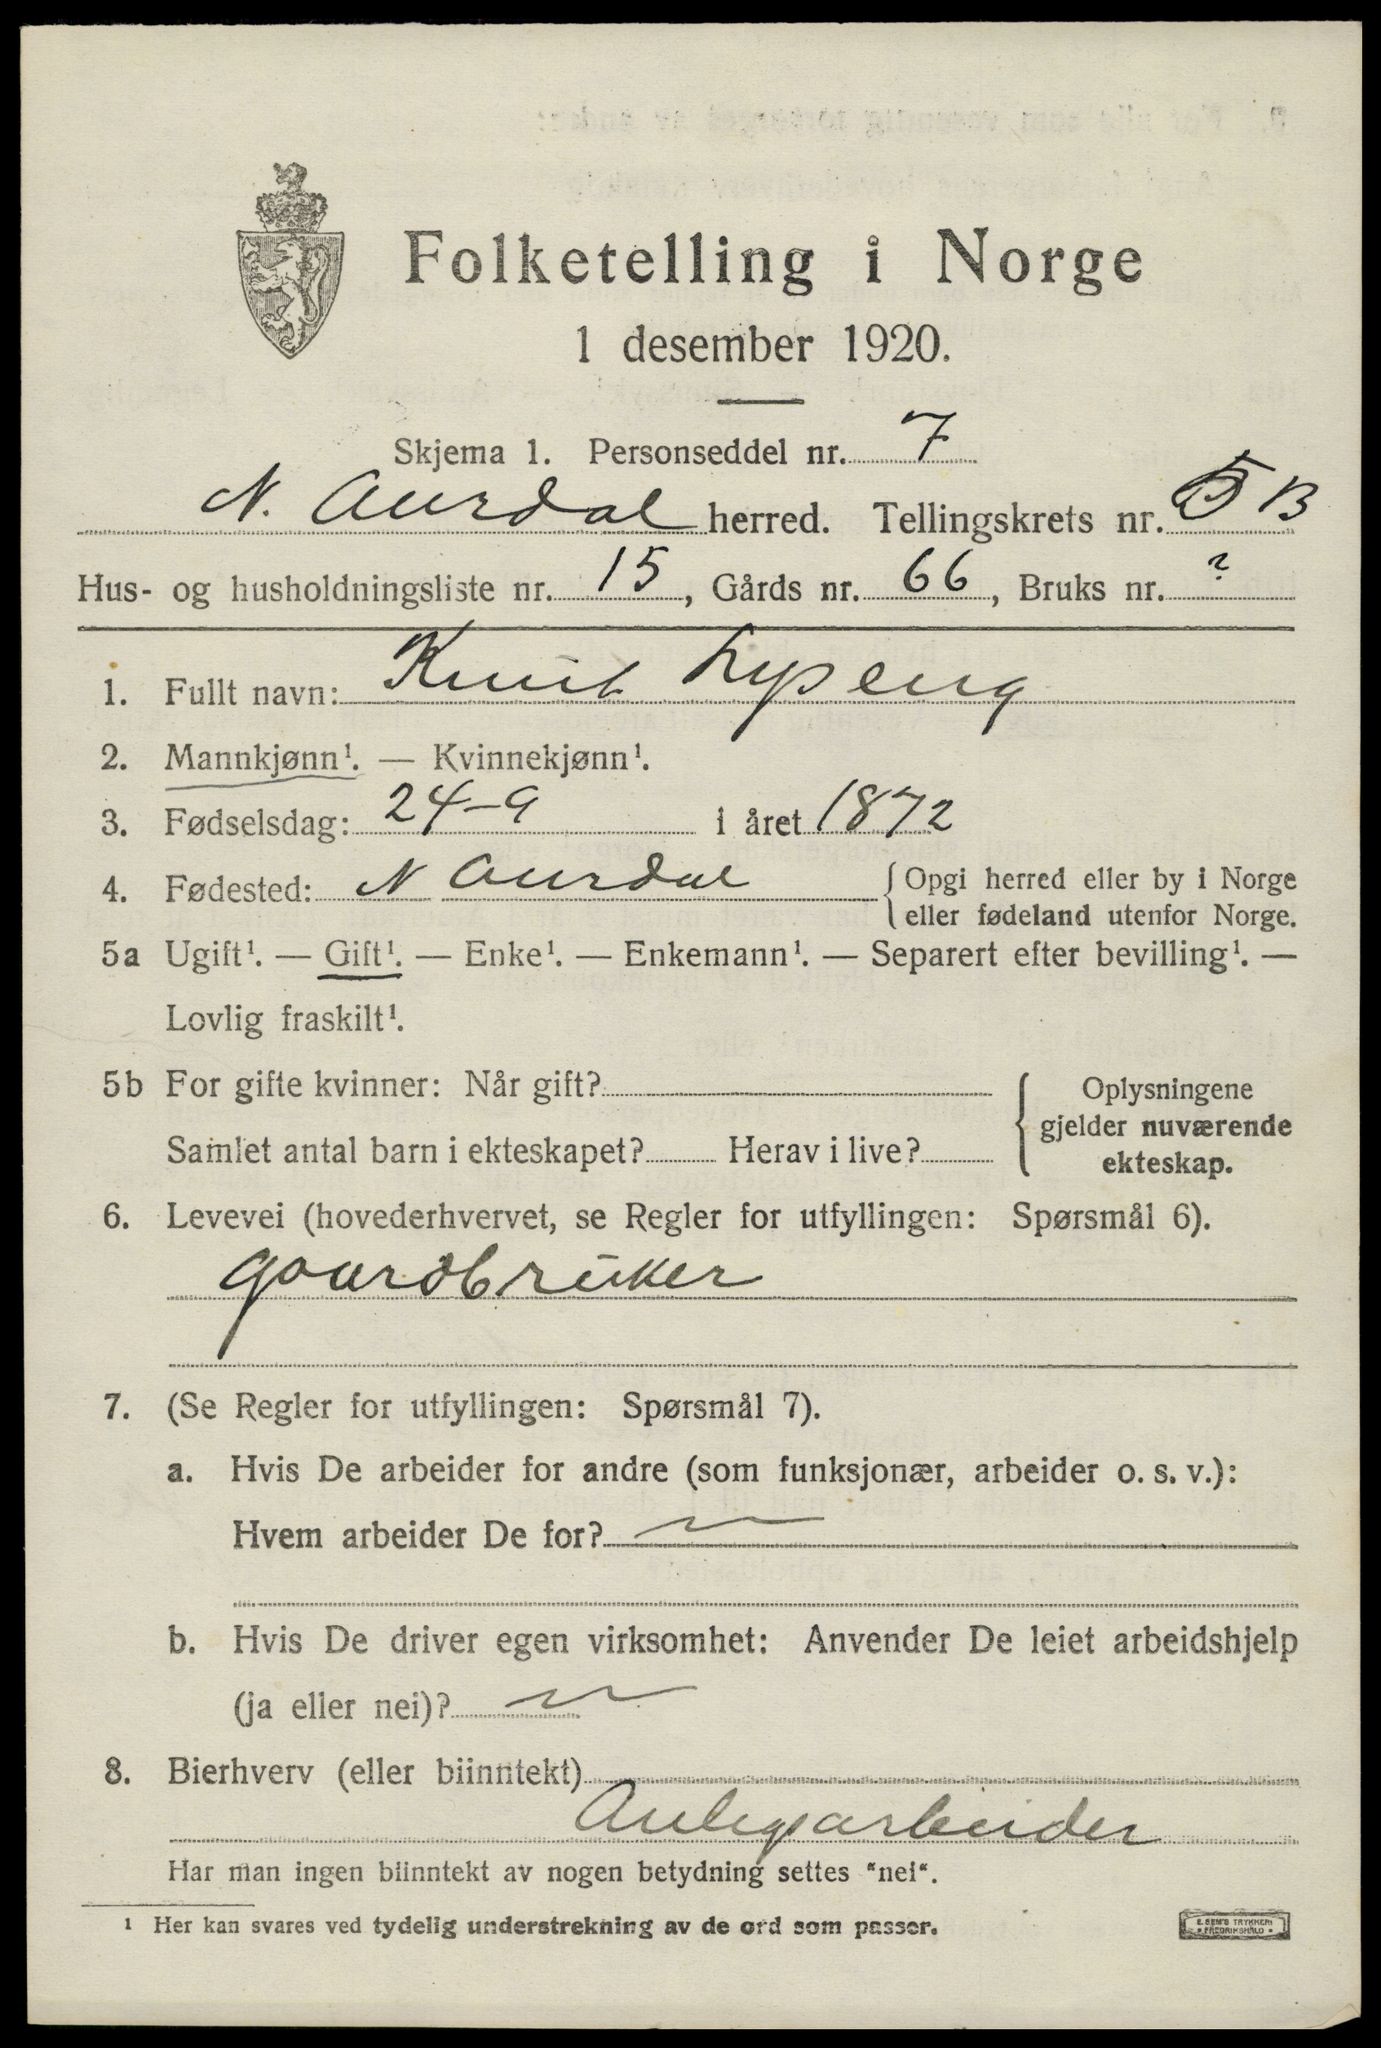 Folketelling i Norge
1 desember 1920.
Skjema 1. Personseddel nr. 7
N. Aurdal herred. Tellingskrets nr. 5 B
Hus- og husholdningsliste nr. 15, Gårds nr. 66, Bruks nr. ?
1. Fullt navn: Knut Lyseng
2. Mannkjønn¹. — Kvinnekjønn¹.
3. Fødselsdag: 24-9 i året 1872
4. Fødested: N Aurdal {Opgi herred eller by i Norge
eller fødeland utenfor Norge.
5a Ugift¹. — Gift¹. — Enke¹. — Enkemann¹. — Separert efter bevilling¹. —
Lovlig fraskilt¹.
5b For gifte kvinner: Når gift?
Samlet antal barn i ekteskapet? Herav i live?
{ Oplysningene
gjelder nuværende
ekteskap.
6. Levevei (hovederhvervet, se Regler for utfyllingen: Spørsmål 6).
gaardbruker
7. (Se Regler for utfyllingen: Spørsmål 7).
a. Hvis De arbeider for andre (som funksjonær, arbeider o. s. v.):
Hvem arbeider De for?
b. Hvis De driver egen virksomhet: Anvender De leiet arbeidshjelp
(ja eller nei)?
8. Bierhverv (eller biinntekt)
Anlegsarbeider
Har man ingen biinntekt av nogen betydning settes "nei".
¹ Her kan svares ved tydelig understrekning av de ord som passer.
E. SEM'S TRYKKERI
• FREDRIKSHALD •